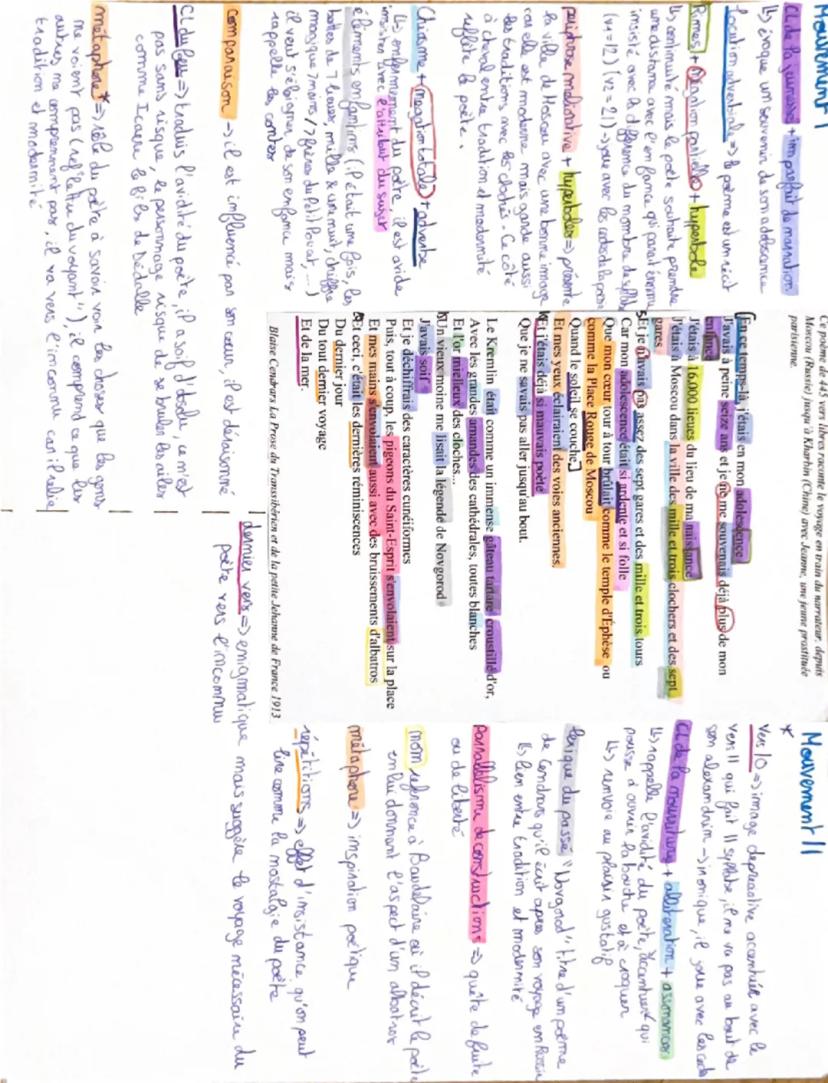 Mouvement I
CL de la jeunesse + imparfait de narration
↳ évoque un souvenir de son adolescence
Locution adverbiale => le poème est un récit
Rimes + négation partielle + hyperbole
↳ continuité mais le poète souhaite prendre
une distance avec l'enfance qui paraît
insisté avec la différence du nombre de syllabe
(v1=12) (v2=21) -> joue avec les codes de la poésie
periphrase méliorative + hyperboles => présente
la ville de Moscou avec une bonne image
car elle est moderne mais garde aussi
les traditions avec les clochés. Ce côté
à cheval entre tradition et modernité
reflète le poète.
Chiasme + (négation totale) + adverbe
↳ enfermement du poète il est avide
avec l'attribut du sujet
éléments enfantins (il était une fois, les
bottes de 7 lieues, mille & une nuit, chiffre
magique 7 nains / 7 frères du Petit Poucet, ...)
il veut s'éloigner de son enfance mais
rappelle les contes
Comparaison -> il est influencé par son cœur, il est déraisonné
CL du feu => traduis l'avidité du poète, il a soif d'absolu, ce n'est
pas sans risque, le personnage risque de se bruler les ailes
comme Icare le fils de Dédalle
métaphore* => rôle du poète à savoir voir les choses que les gens
ne voient pas (ref "lettre du voyant"), il comprend ce que les
autres ne comprennent pas, il va vers l'inconnu car il relie
tradition et modernité
Ce poème de 445 vers libres raconte le voyage en train du narrateur, depuis
Moscou (Russie) jusqu'à Kharbin (Chine) avec Jeanne, une jeune prostituée
parisienne.
En ce temps-là, j'étais en mon adolescence
J'avais à peine seize ans et je ne me souvenais déjà plus de mon
enfance
J'étais à 16.000 lieues du lieu de ma naissance
J'étais à Moscou dans la ville des mille et trois clochers et des sept
gares
5 Et je n'avais pas assez des sept gares et des mille et trois tours
Car mon adolescence était si ardente et si folle
Que mon cœur tour à tour brûlait comme le temple d'Éphèse ou
comme la Place Rouge de Moscou
Quand le soleil se couche.]
Et mes yeux éclairaient des voies anciennes.
10 Et j'étais déjà si mauvais poète
Que je ne savais pas aller jusqu'au bout.
Le Kremlin était comme un immense gâteau tartare croustillé d'or,
Avec les grandes amandes des cathédrales, toutes blanches
Et l'or mielleux des cloches...
Un vieux moine me lisait la légende de Novgorod
J'avais soif
Et je déchiffrais des caractères cunéiformes
Puis, tout à coup, les pigeons du Saint-Esprit s'envolaient sur la place
Et mes mains s'envolaient aussi avec des bruissements d'albatros
Et ceci, c'était les dernières réminiscences
Du dernier jour
Du tout dernier voyage
Et de la mer.
Blaise Cendrars La Prose du Transsibérien et de la petite Jehanne de France 1913
Mouvement II
*
Vers 10 => image dépréciative accentuée avec le
vers 11 qui fait 11 syllabe, il ne va pas au bout de
son alexandrin -> ironique, il joue avec les codes
CL de la nourriture + allitération + assonances
↳ rappelle l'avidité du poète, accentuer qui
pousse à ouvrir la bouche et à croquer
↳ renvoie au plaisir gustatif
lexique du passé "Novgorod" titre d'un poème
de Cendrars qu'il écrit après son voyage en Russie
↳ lien entre tradition et modernité
Parallélisme de constructions => quête de fuite
ou de liberté
nom référence à Baudelaire où il décrit le poète
en lui donnant l'aspect d'un albatros
métaphore => inspiration poétique
répétitions => effet d'insistance qu'on peut
lire comme la nostalgie du poète
dernier vers => énigmatique mais suggère le voyage nécessaire du
poète vers l'inconnu